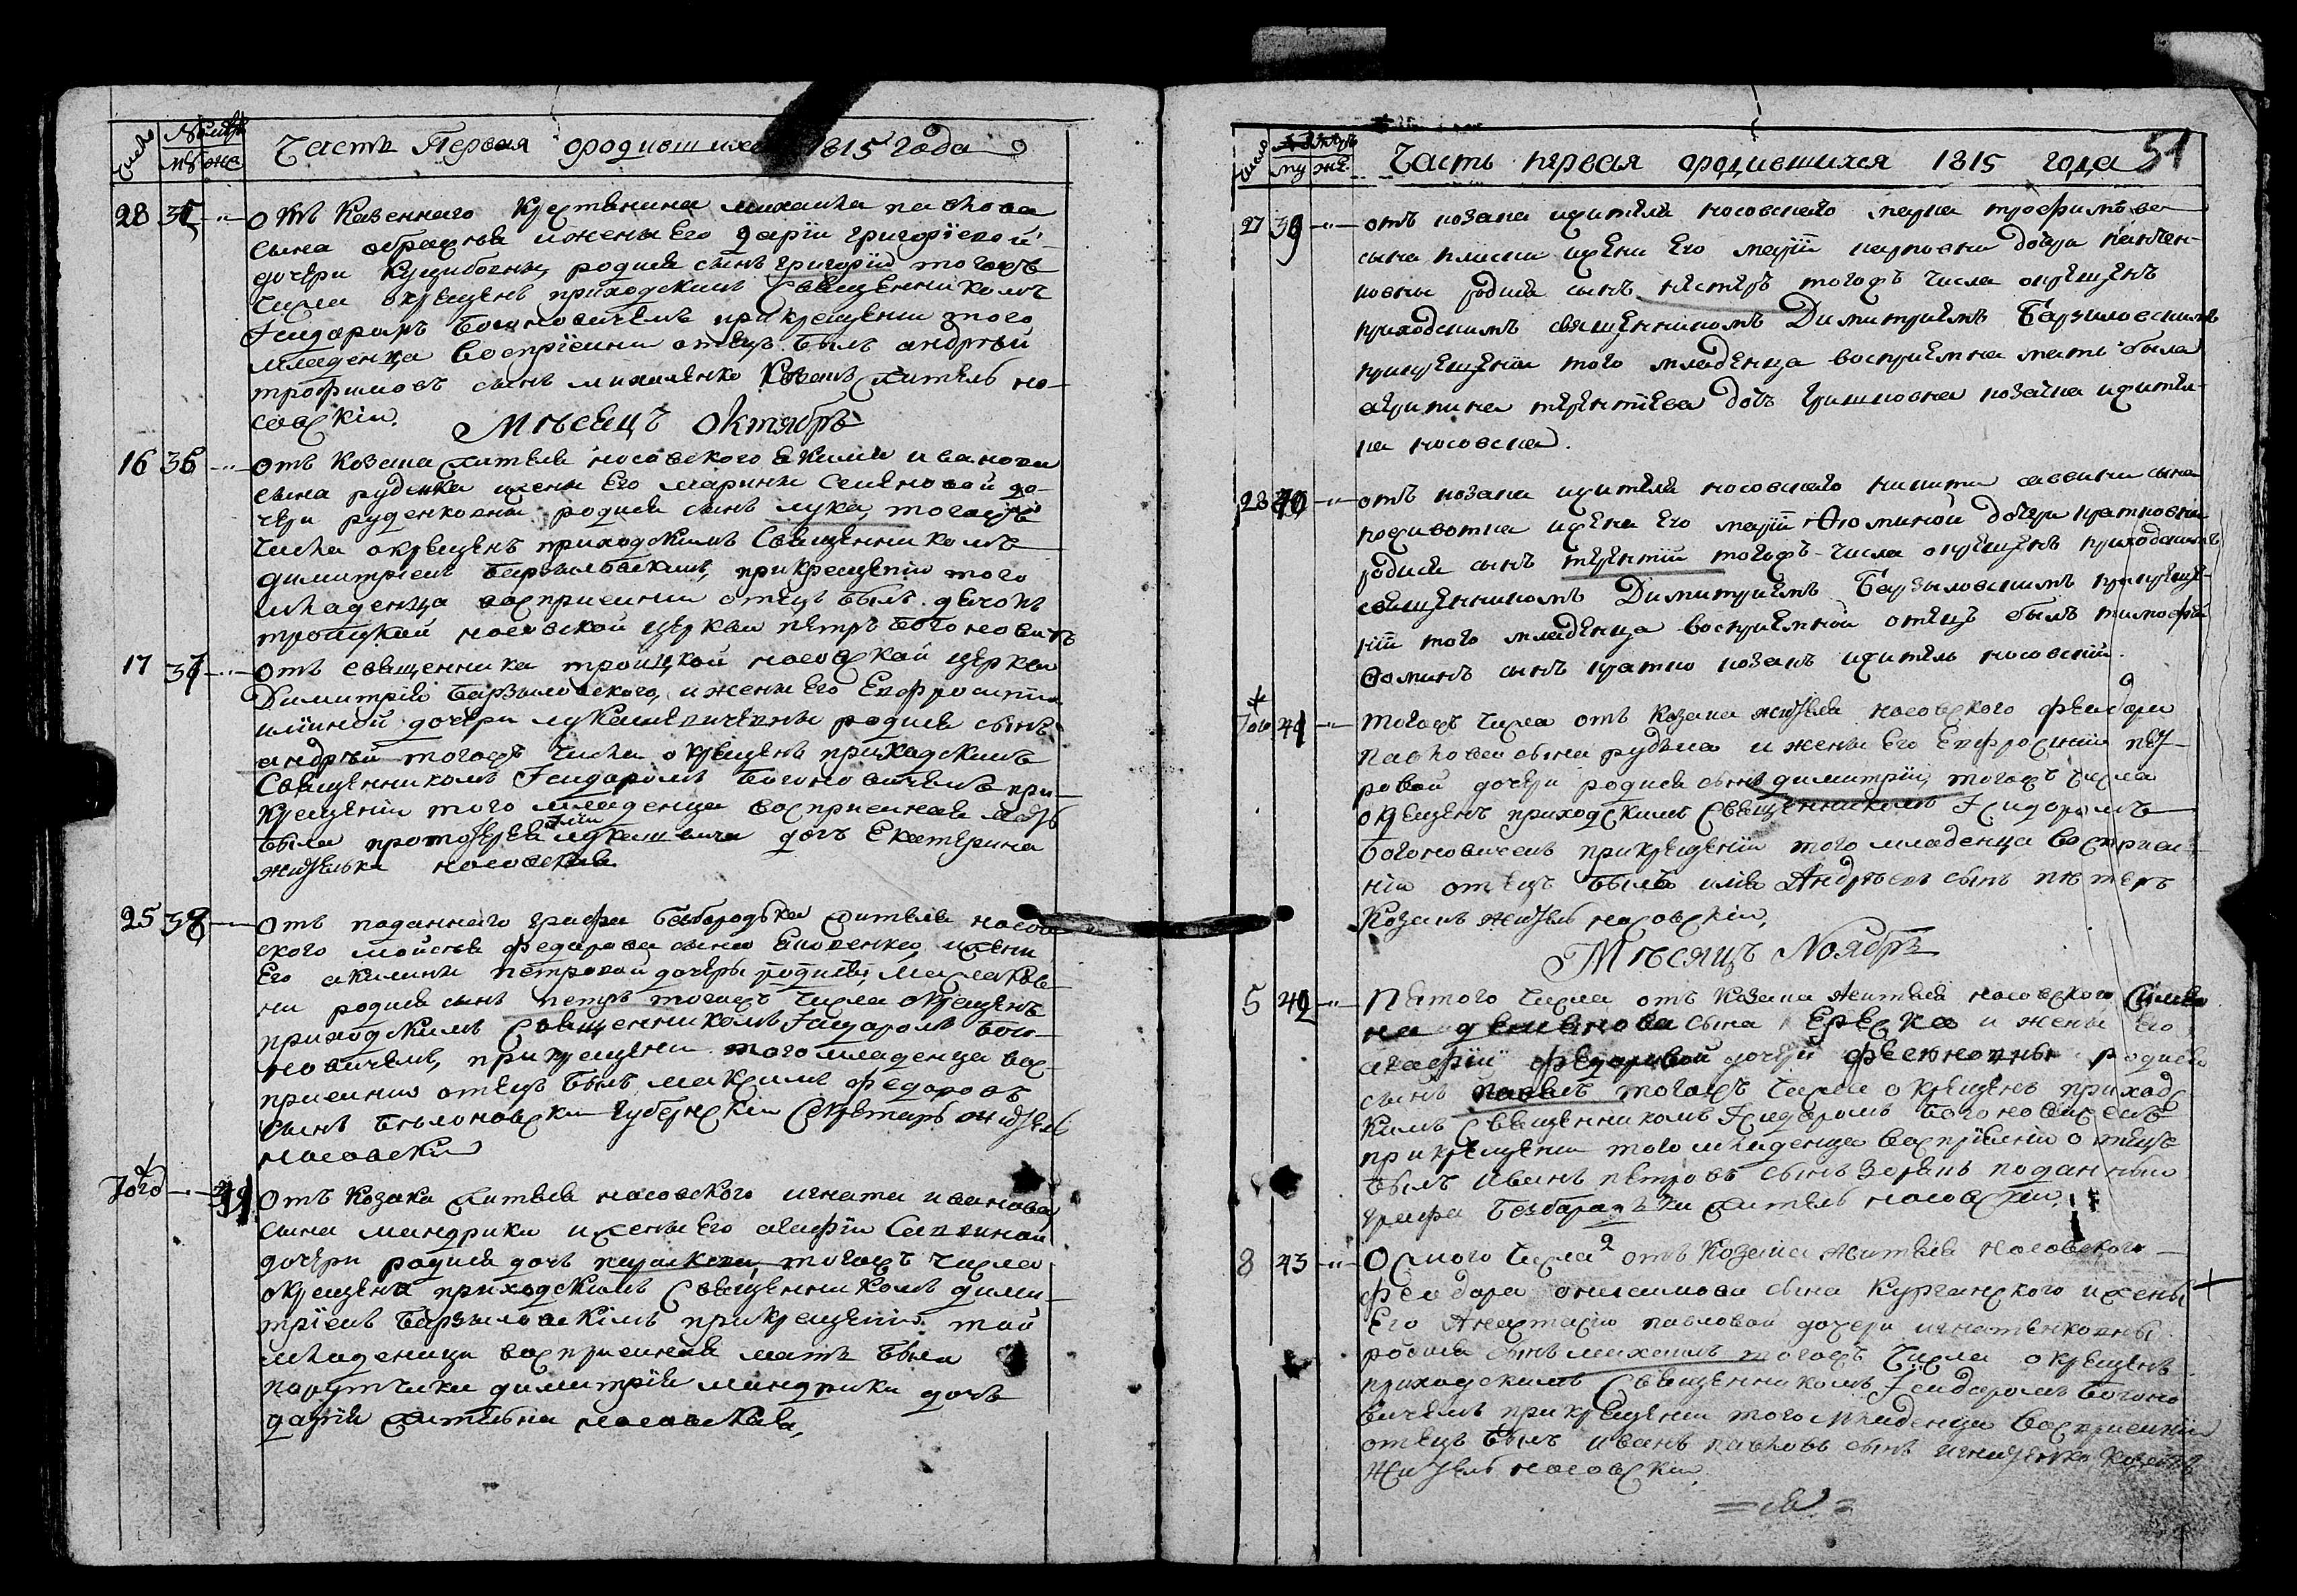 Число
Номеръ
мѹ же
Часть Первая о родившихся 1815 Года
28 35 отъ Казеннаго Крестянина михаила павлова
сына и жены Его дарїи григорїевой
дочери родился сынъ григорїй тогожъ
Числа окрещенъ приходскимъ Священникомъ
Ісидоромъ Богоновичемъ при крещенїи того
младенца воспрїемни отецъ былъ андрей
трофимовъ сынъ михаленко Козакъ житель но-
совскїй.
Мѣсецъ Октябрь
16 36 отъ Козака жителя носовского якима иванова
сына руденка жены Его марины Семеновой до-
чери руденковны родился сынъ лука, тогожъ
числа окрещенъ приходскимъ Священникомъ
димитрїемъ Барзыловскимъ, при крещенїи того
младенца восприемни отецъ былъ дячокъ
троицкой носовской церкви петръ Богоновичъ
17 37 отъ священника троицкой носовской церкви
Димитрїя Барзыловского, и жены Его Евфросинїи
иліиной дочери лукашевичевны родился сынъ
андрей тогожъ числа окрещенъ приходскимъ
Священникомъ Ісидоромъ Богоновичемъ при
крещенїи того младенца восприемная мать
была протоіерея иліи лукашевича дочь Екатерина
жителька носовская
25 38 отъ поданного графа Безбородька жителя носов
ского мойсея федорова сына жены
Его акилины петровой дочери
родился сынъ петръ тогожъ числа окрещенъ
приходскимъ Священникомъ Ісидоромъ Бого-
новичемъ, при крещенїи того младенца вос-
приемни отецъ былъ максимъ федоровъ
сынъ губернскїй Секретарь житель
носовскїй
Того 39 отъ Козака жителя носовского игната иванова
сына мандрики и жены Его агафїи Саввиной
дочери родися дочь параскева, тогожъ числа
окрещена приходскимъ Священникомъ дими-
трїемъ Барзыловскїмъ при крещенїи той
младеници восприемная мать была
поручика димитрїя мандрики дочь
дарїя жителька носовская,
51
Число
му же
Часть первая о родившихся 1815 года
27 39 отъ козака жителя носовскаго марка трофимова
сына жены Его марїи карповни дочери
родися сынъ нестеръ тогожъ числа окрещенъ
приходскимъ священникомъ Димитрїемъ Барзыловскимъ
при крещенїи того младенца восприемна мать была
акрипина терентїева дочь козачка жител-
ка носовска.
28 40 отъ козака жителя носовскаго никити саввина сына
жена Его марїи Ѳоминой дочери
родися сынъ терентїй тогожъ числа окрещенъ приходскимъ
священникомъ Димитрїемъ Барзыловскимъ при креще-
нїи того младенца восприемной отецъ былъ тимофей
Ѳоминъ сынъ козакъ житель носовскїй.
Того 41 тогожъ числа отъ Козака жителя носовского феодора
павлова сына рудька и жены Его Евфросинїи пет-
ровой дочери родися сынъ димитрїй, тогожъ числа
окрещенъ приходскимъ Священникомъ Ісидоромъ
Богоновичемъ при крещенїи того младенца восприем-
нїй отецъ былъ илїя Андреевъ сынъ
Козакъ житель носовскїй,
Мѣсяцъ Ноябрь
5 42 Пятого числа отъ Козака жителя носовского
демянова сына и жены Его
агафїи федоровой дочери родися
сынъ павелъ тогожъ числа окрещенъ приходс
кимъ Священникомъ Ісидоромъ Богоновичемъ
при крещенїи того младенца восприемни отецъ
былъ иванъ петровъ сынъ поданный
графа Безбородька житель носовскїй.
8 43 Осмого числа отъ Козака жителя носовского
феодора онисимова сына Курганского и жены
Его Анастасїи павловой дочери игнатенковны
родися сынъ михаилъ тогожъ числа окрещенъ
приходскимъ Священникомъ Ісидоромъ Богоно
вичемъ при крещенїи того младенца восприемнїй
отецъ былъ иванъ павловъ сынъ игнатенко Козакъ
житель носовскїй.